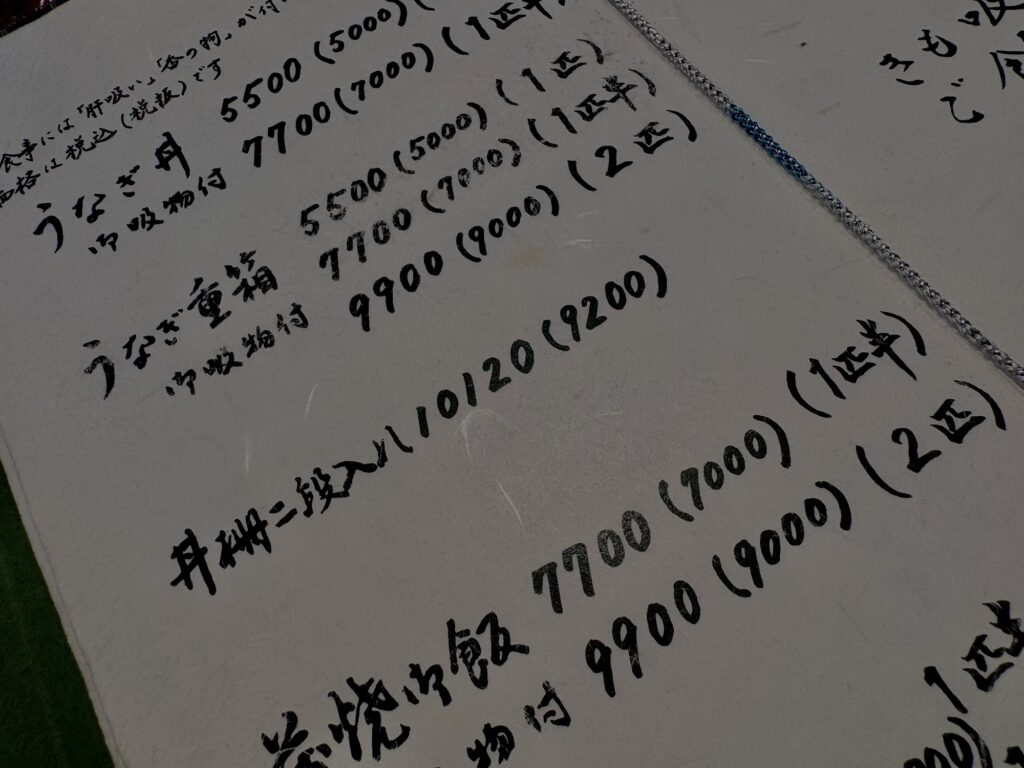 食事には「肝吸い」「香の物」が付
価格は税込(税抜)です
うなぎ丼 5500(5000)(
御吸物付 7700(7000)(1匹半
うなぎ重箱 5500(5000)(1匹)
7700(7000)(1匹半)
御吸物付 9900(9000)(2匹)
丼柵二段入れ 10120(9200)
焼御飯 7700(7000)(1匹半)
物付 9900(9000)(2匹)
1匹半
きも吸
で